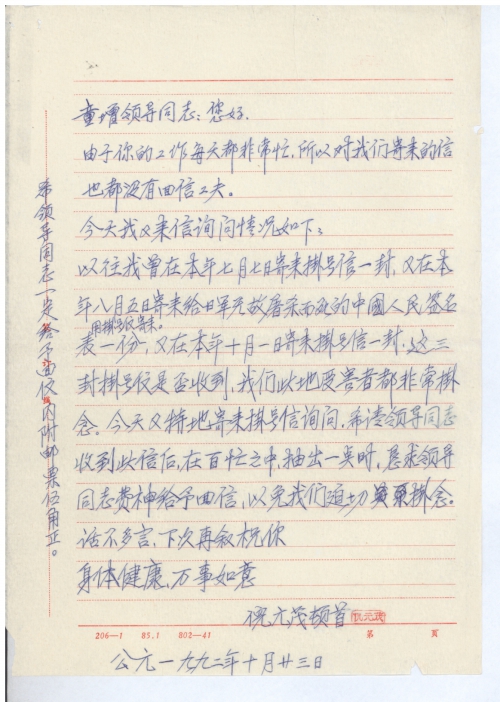 童增领导同志：您好．
由于你的工作每天都非常忙，所以对我们寄来的信
也都没有回信工夫。
今天我又来信询问情况如下：
以往我曾在本年七月七日寄来掛号信一封，又在本
年八月五日寄来给日军无故屠杀而死的中國人民签名
用掛号仪寄来．
表一份，又在本年十月一日寄来掛号信一封，这三
封掛号仪是否收到，我们此地受害者都非常掛
念。今天又特地寄来掛号信询问，希请领导同志
收到此信后，在百忙之中，抽出一点时，恳求领导
同志费神给予回信，以免我们迫切掛念。
话不多言，下次再叙祝你
身体健康，万事如意
倪元茂顿首 倪元茂
206—1 85.1 802—41 第 页
公元一九九二年十月廿三日
希领导同志一定给予回仪内附邮票伍角正。